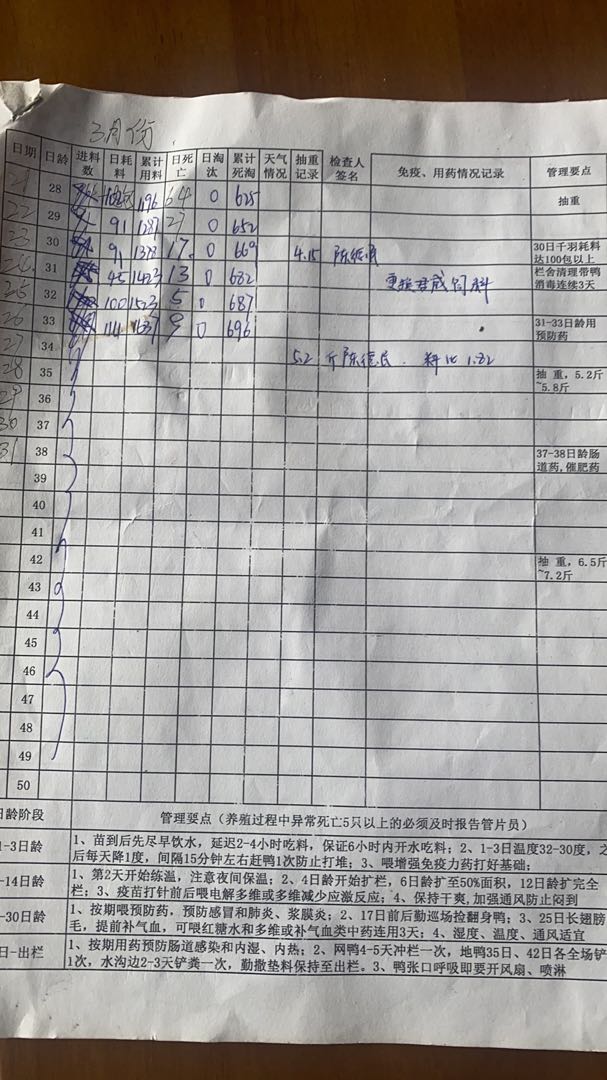 3月份
日期 日龄 进料数 日耗料 累计用料 日死亡 日淘汰 累计死淘 天气情况 抽重记录 检查人签名 免疫、用药情况记录 管理要点
21 28 1196 64 0 625 抽重
22 29 91 1287 27 0 652
23 30 91 1378 17 0 669 4.15 30日千羽耗料达100包以上
24 31 45 1423 13 0 682 更换君成饲料 栏舍清理带鸭消毒连续3天
25 32 100 1523 5 0 687
26 33 114 1637 9 0 696 31-33日龄用预防药
27 34 5.2斤 料比 1.82
28 35 抽重，5.2斤~5.8斤
29 36
30 37
31 38 37-38日龄肠道药,催肥药
39
40
41
42 抽重，6.5斤~7.2斤
43
44
45
46
47
48
49
50
日龄阶段 管理要点（养殖过程中异常死亡5只以上的必须及时报告管片员）
1-3日龄 1、苗到后先尽早饮水，延迟2-4小时吃料，保证6小时内开水吃料；2、1-3日温度32-30度，之
后每天降1度，间隔15分钟左右赶鸭1次防止打堆；3、喂增强免疫力药打好基础；
-14日龄 1、第2天开始练温，注意夜间保温；2、4日龄开始扩栏，6日龄扩至50%面积，12日龄扩完全
栏；3、疫苗打针前后喂电解多维或多维减少应激反应；4、保持干爽,加强通风防止闷到
-30日龄 1、按期喂预防药，预防感冒和肺炎、浆膜炎；2、17日前后勤巡场捡翻身鸭；3、25日长翅膀
毛，提前补气血，可喂红糖水和多维或补气血类中药连用3天；4、湿度、温度、通风适宜
日-出栏 1、按期用药预防肠道感染和内湿、内热；2、网鸭4-5天冲栏一次，地鸭35日、42日各全场铲
1次，水沟边2-3天铲粪一次，勤撒垫料保持至出栏。3、鸭张口呼吸即要开风扇、喷淋